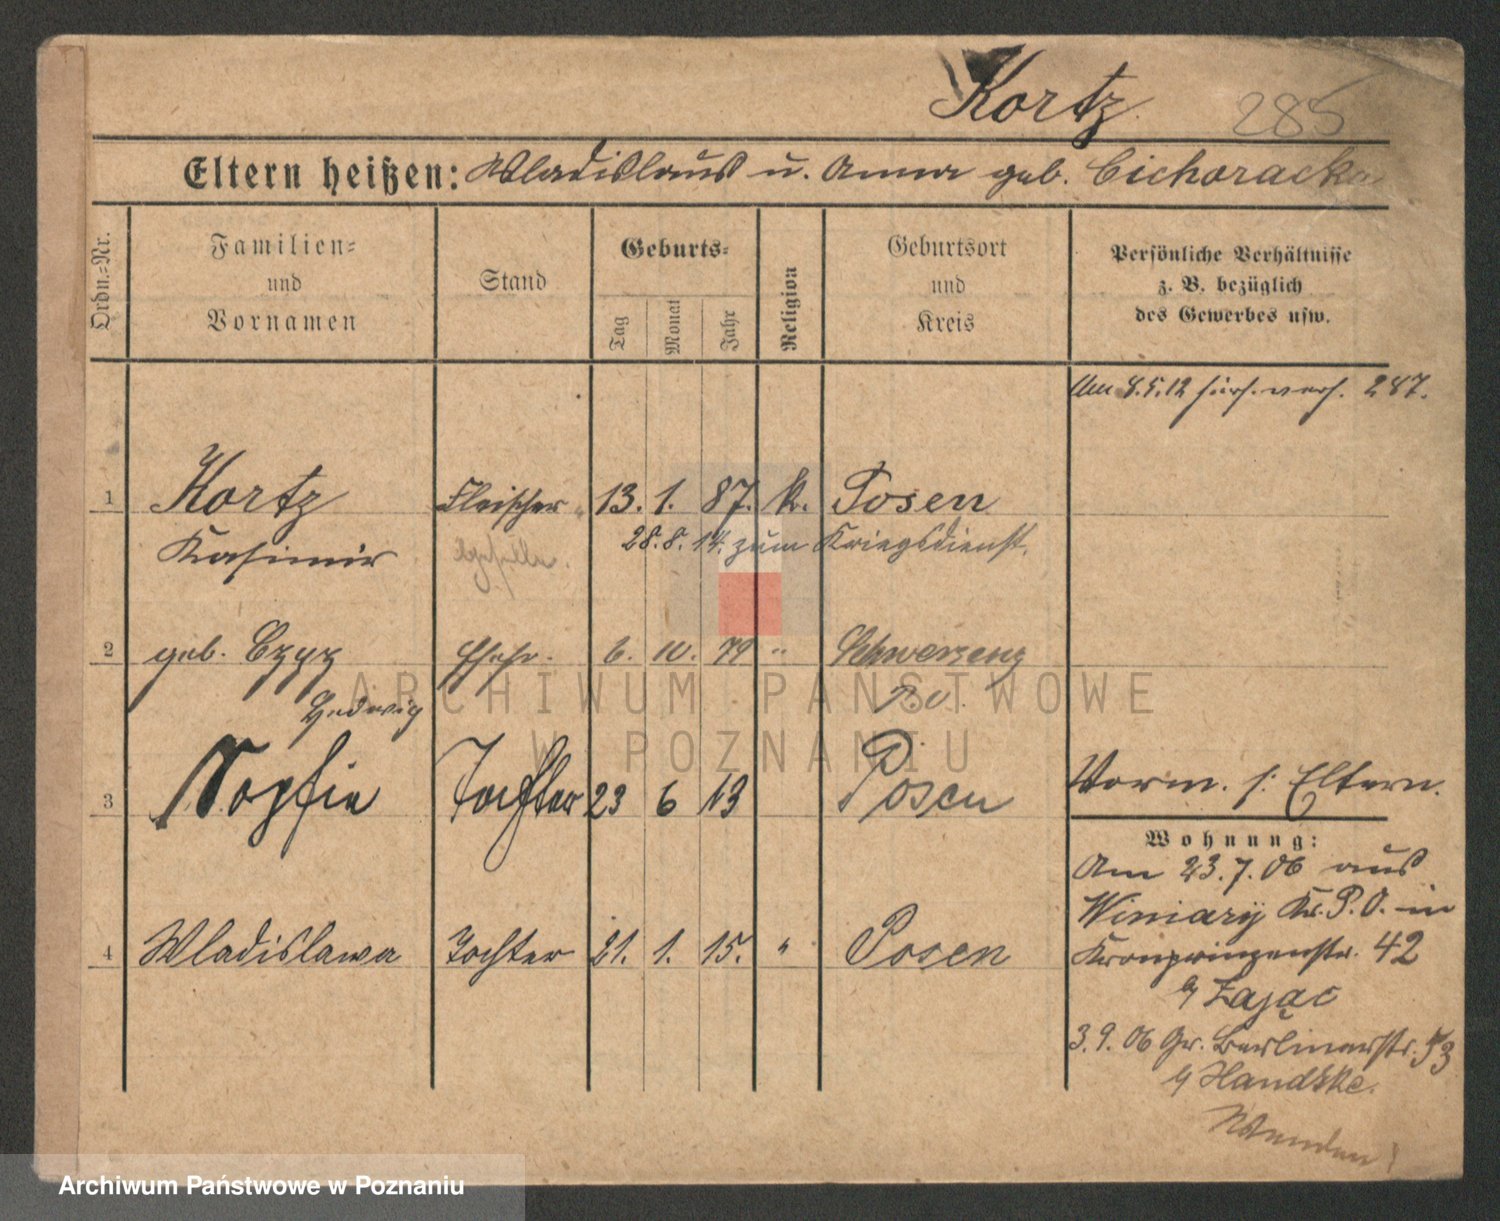 Kortz.
285
Eltern heißen: Wladislaus u. Anna geb. Cichoracka
Ordn.-Nr.
Familien-
und
Vornamen
Stand
Geburts-
Tag
Monat
Jahr
Religion
Geburtsort
und
Kreis
Persönliche Verhältnisse
z. B. bezüglich
des Gewerbes usw.
Am 8.5.12 verh. 287.
1 Kortz Fleischer 13. 1. 87. k. Posen
Kasimir
28.8.14. zum Kriegsdienst.
2 geb. Czyz Ehefr. 6. 10. 79 " Schwersenz
Hedwig P.O.
3 Sophie Tochter 23 6 13 Posen
Vorm. s. Eltern.
Wohnung:
Am 23.7.06 aus
Winiary Kr. P.O. in
Kronprinzenstr. 42
b/ Zając
3.9.06 Gr. Berlinerstr. 73
b/ Handtke.
Wenden!
4 Wladislawa Tochter 21. 1. 15. " Posen
ARCHIWUM PAŃSTWOWE
W POZNANIU
Archiwum Państwowe w Poznaniu